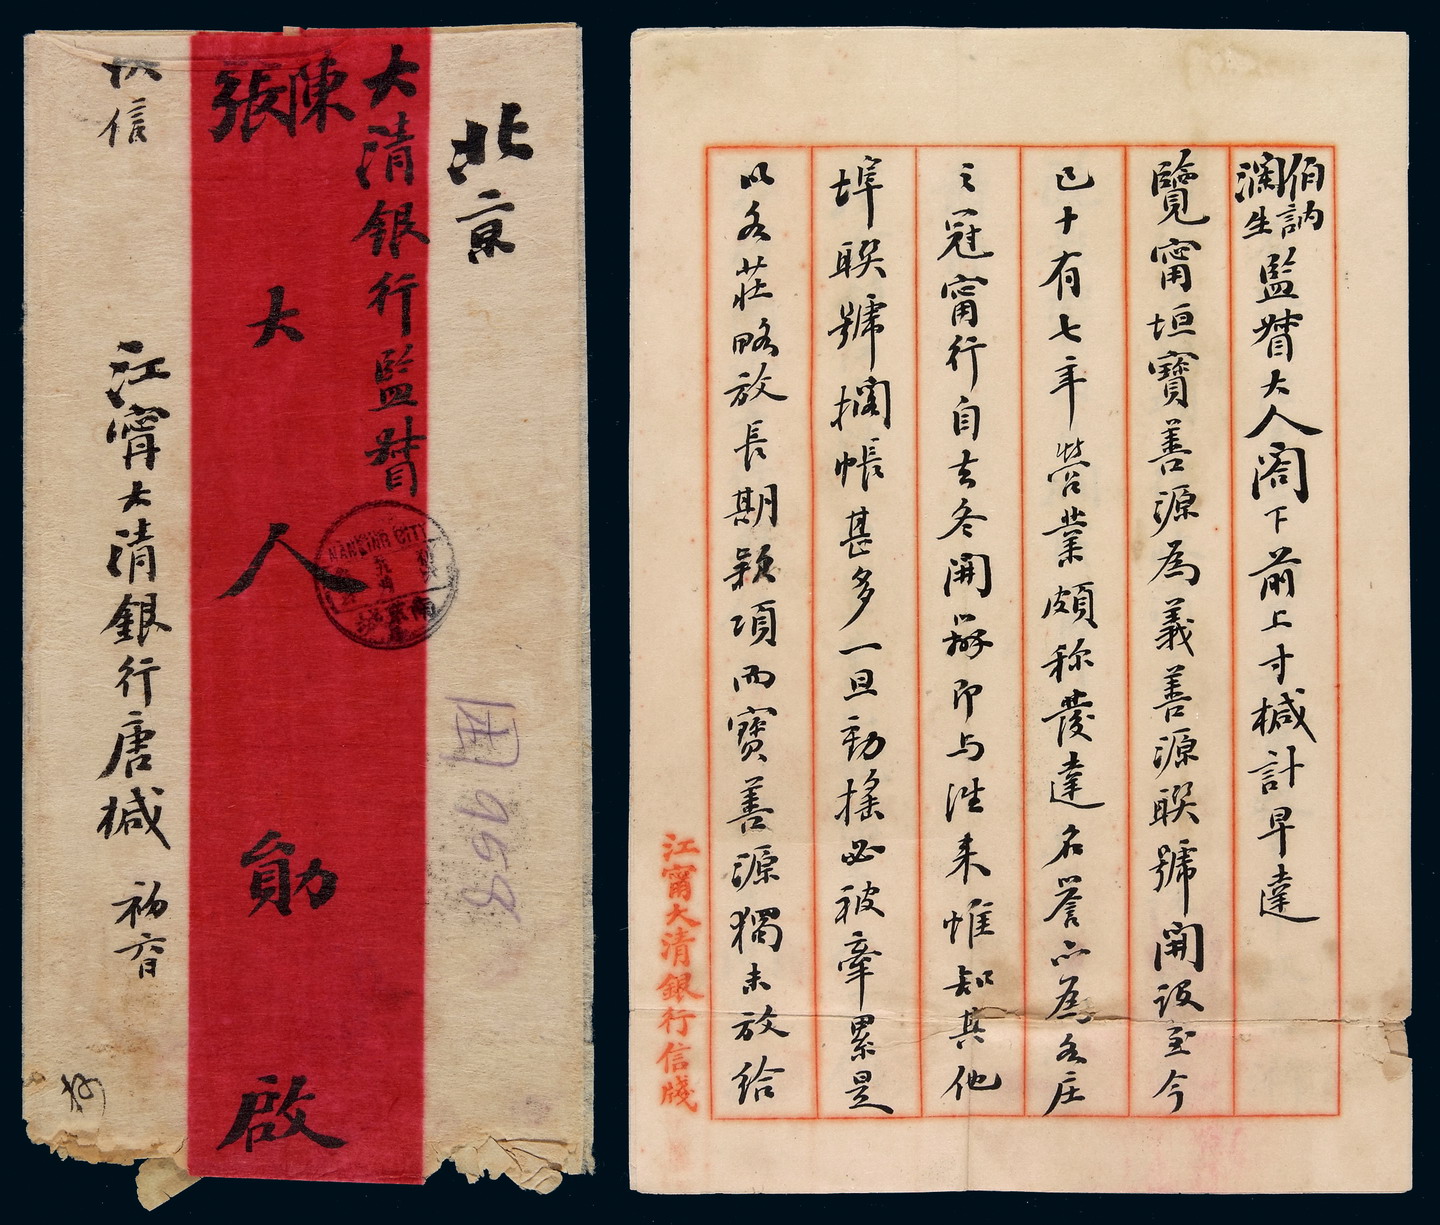 北京
大清銀行監督
陳
張
大人勛啟
信
江甯大清銀行唐緘
初六日
NANKING CITY
南京
958
伯訥
瀾生
監督大人閣下前上寸緘計早達
覽甯垣寶善源為義善源聯號開設至今
已十有七年營業頗稱發達名譽亦為各庄
之冠甯行自去冬開辦即与往来惟知其他
埠聯號擱帳甚多一旦動搖必被牽累是
以各莊略放長期款項而寶善源獨未放給
江甯大清銀行信牋